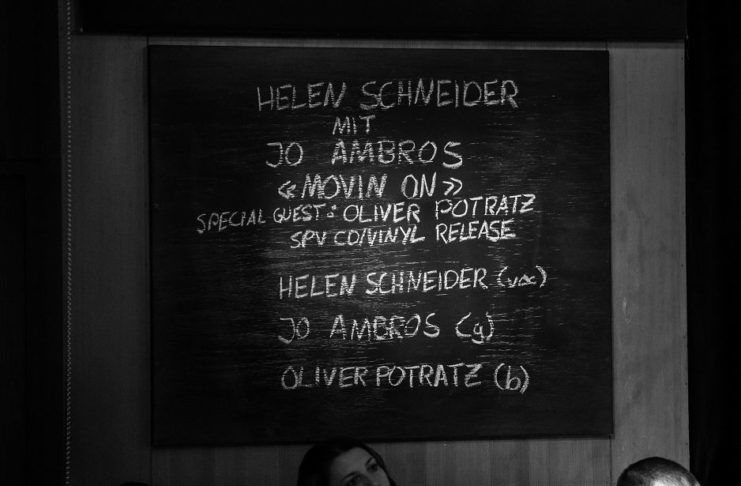 HELEN SCHNEIDER
MIT
JO AMBROS
«MOVIN ON»
SPECIAL GUEST: OLIVER POTRATZ
SPV CD/VINYL RELEASE
HELEN SCHNEIDER (voc)
JO AMBROS (g)
OLIVER POTRATZ (b)